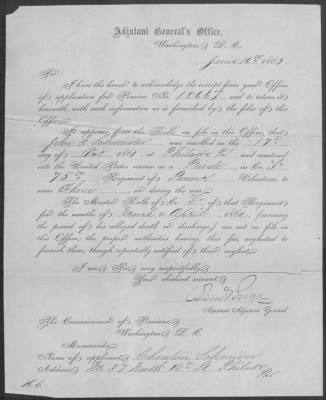 Adjutant General's Office,
Washington, D. C.
June 16th 1863
Sir:
I have the honor to acknowledge the receipt from your Office
of application for Pension No. and to return it
herewith, with such information as is furnished by the files of this
Office.
It appears from the Rolls on file in this Office, that
John Schneider was enrolled on the 17th
day of Oct 1861, at Philada Pa, and mustered
into the United States service as a in Co.
75th Regiment of Penna Volunteers, to
serve three , or during the war.
The Muster Rolls of Co. of that Regiment
for the months of March & April 1862, (covering
the period of his alleged death or discharge,) are not on file in
this Office; the proper authorities having, thus far, neglected to
furnish them, though repeatedly notified of their neglect.
I am Sir, very respectfully,
Your obedient servant,
Assistant Adjutant General
The Commissioner of Pensions
Washington, D. C.
Memoranda:
Name of applicant, Christine Schneider
Address, No. 27 North 16th St. Philada
Pa